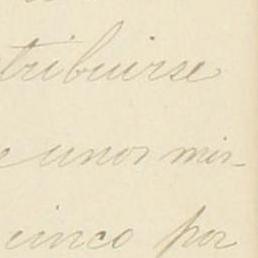 tribuirse
e unos mis-
cinco por